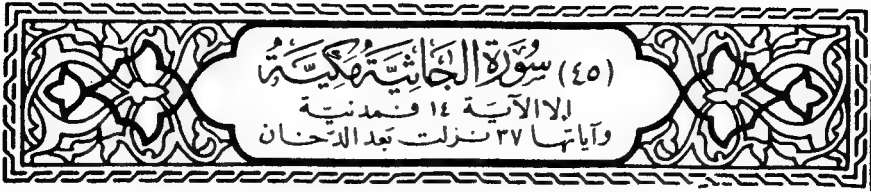 (٤٥) سُورَةُ الجَاثِيَة مَكيَّة
إلا الآيَة ١٤ فمدنيّة
وآياتها ٣٧ نزلت بَعد الدّخان